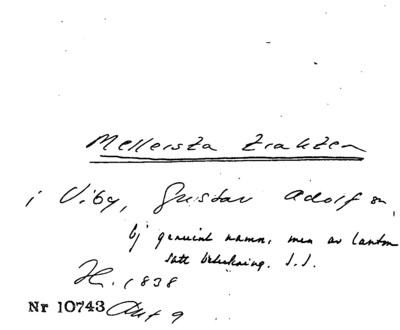 Mellersta trakten
i Viby, Gustav Adolf sn,
Ej genuint namn, men av lantm
satt beteckning. I.I.
H. 1838
Nr 10743 Akt 9